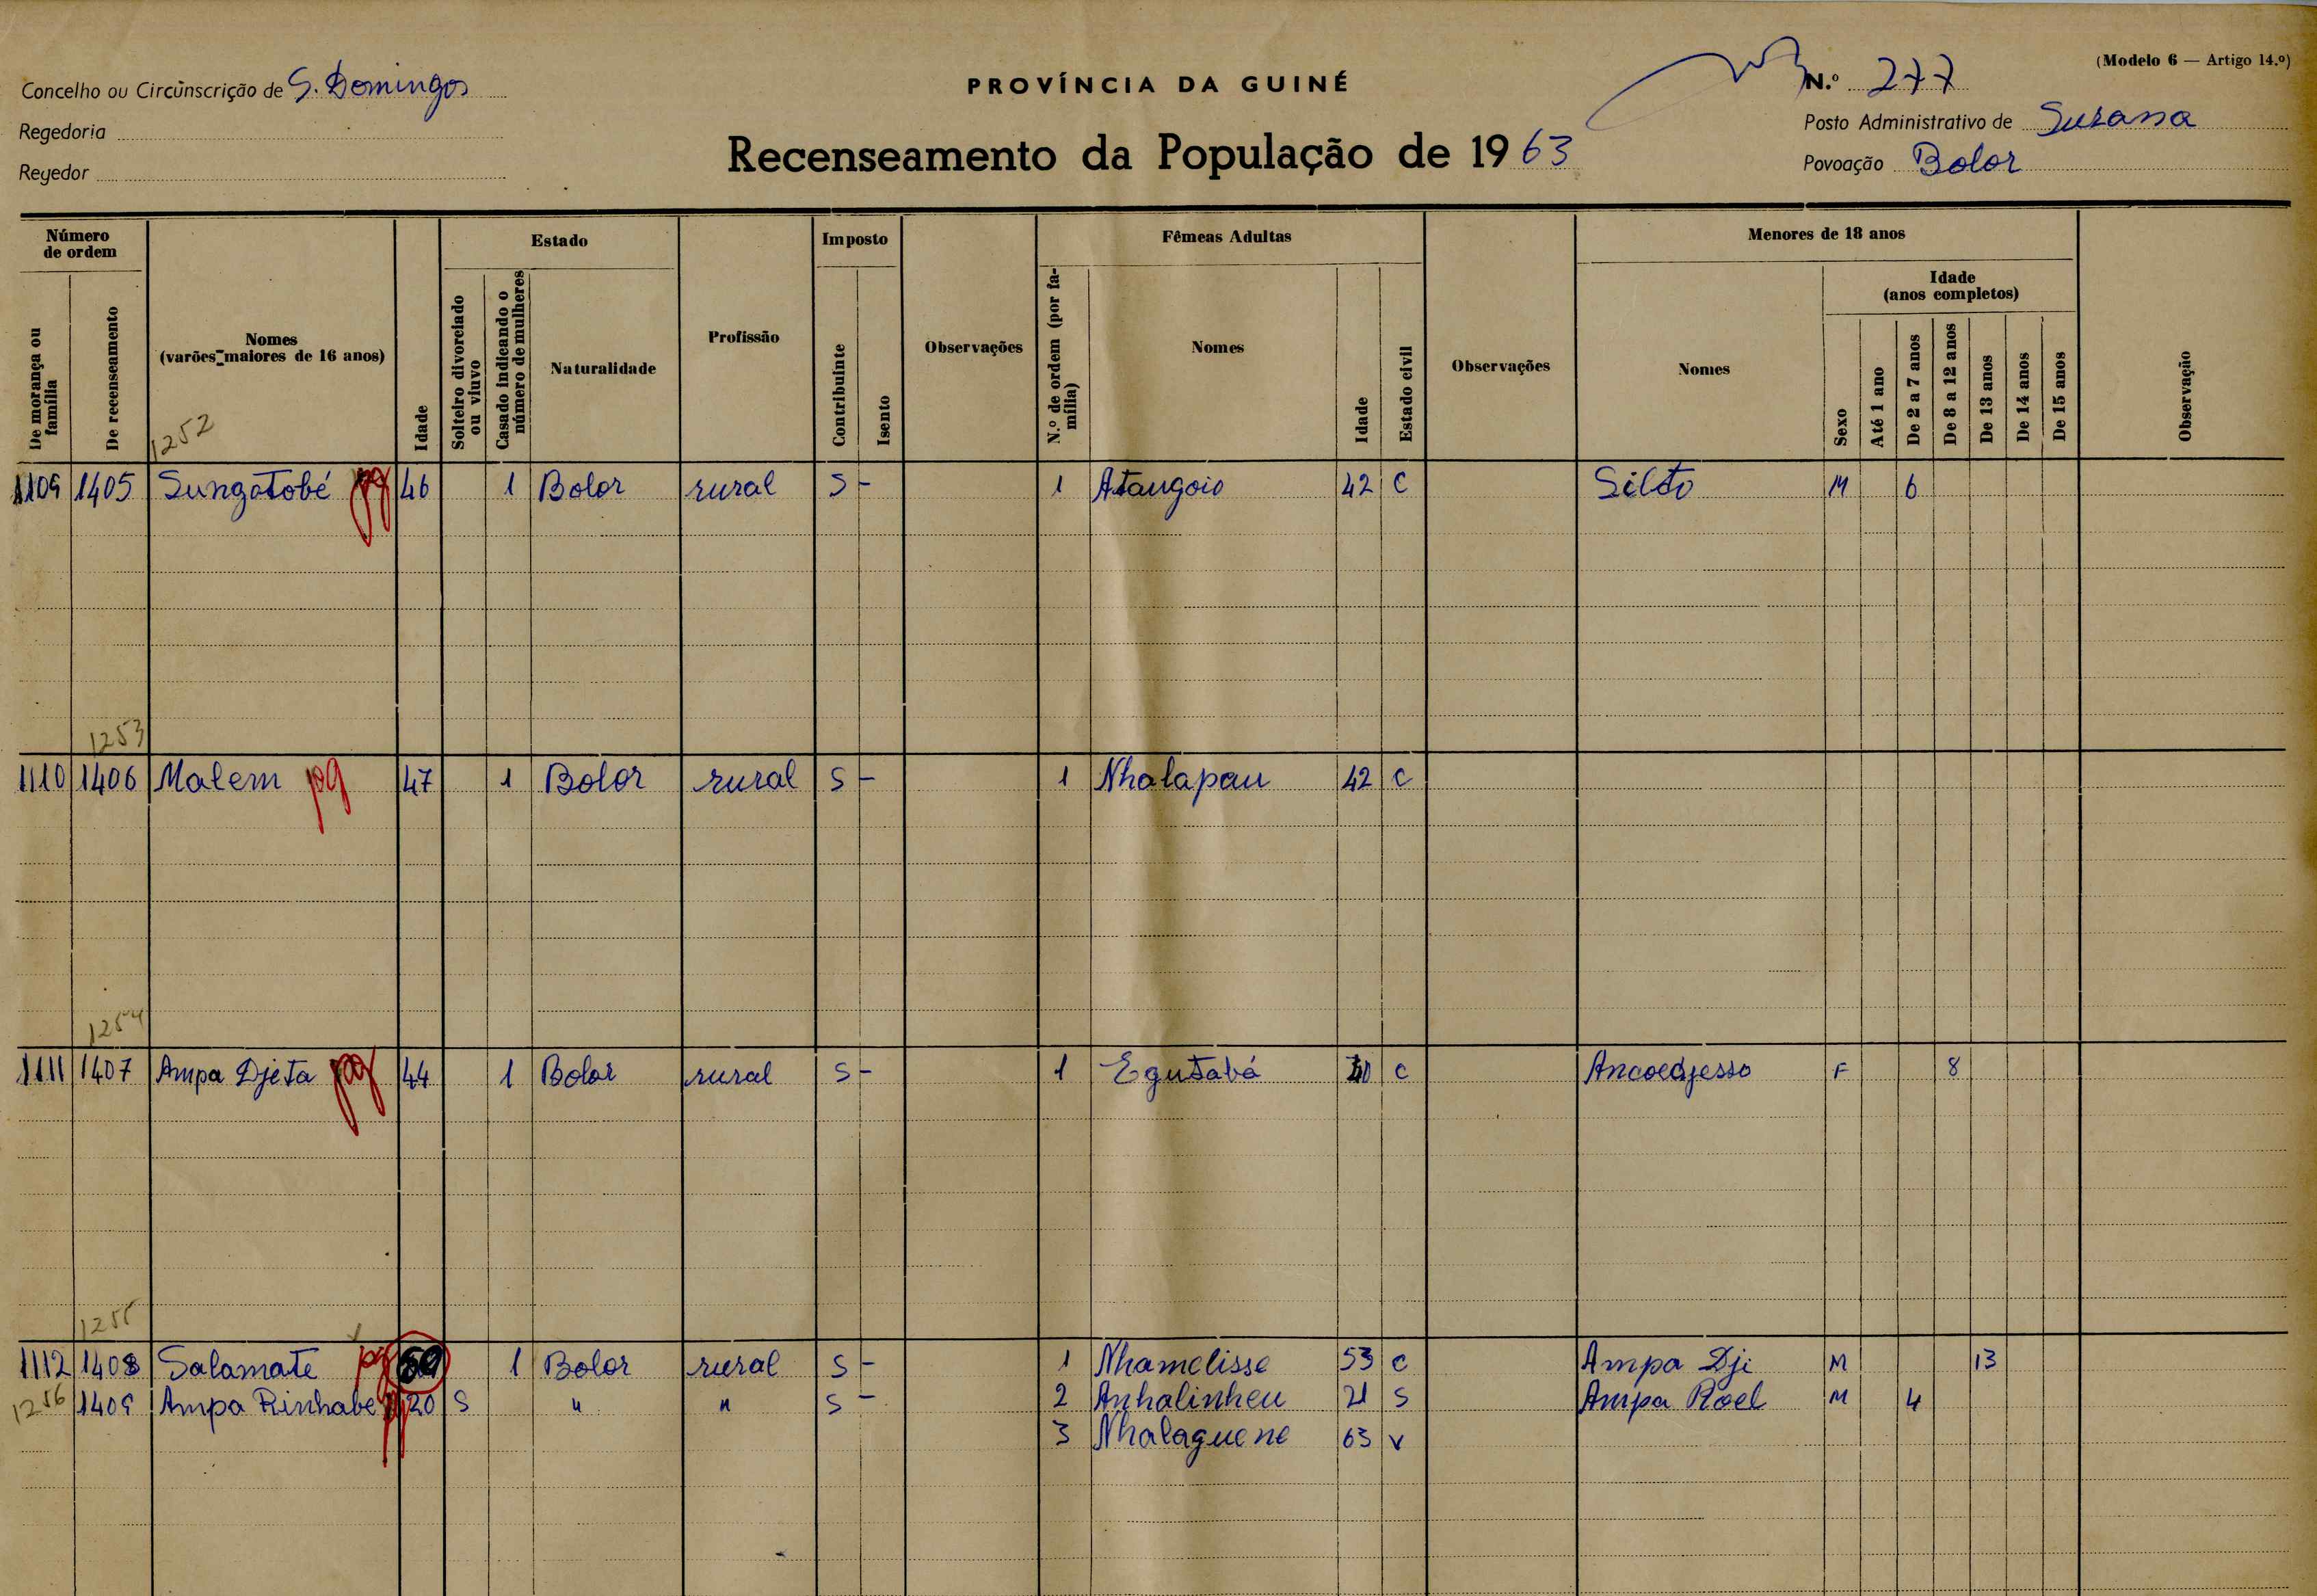 (Modelo 6 — Artigo 14.º)
Concelho ou Circùnscrição de S. Domingos
PROVÍNCIA DA GUINÉ
N.º 277
Regedoria
Posto Administrativo de Suzana
Recenseamento da População de 1963
Regedor
Povoação Bolor
Número de ordem
De morança ou família
De recenseamento
Nomes
(varões maiores de 16 anos)
Idade
Estado
Solteiro divorciado ou viuvo
Casado indicando o número de mulheres
Naturalidade
Profissão
Imposto
Contribuinte
Isento
Observações
Fêmeas Adultas
N.º de ordem (por família)
Nomes
Idade
Estado civil
Observações
Menores de 18 anos
Nomes
Sexo
Idade
(anos completos)
Até 1 ano
De 2 a 7 anos
De 8 a 12 anos
De 13 anos
De 14 anos
De 15 anos
Observação
1252
1109 1405 Sungotobé pg 46 1 Bolor rural S - 1 Atangoio 42 C Silöto M 6
1253
1110 1406 Malem pg 47 1 Bolor rural S - 1 Nhalapau 42 C
1254
1111 1407 Ampa Djeta pg 44 1 Bolor rural S - 1 Egutabá 40 C Ancoedjesso F 8
1255
1112 1408 Salamate pg 1 Bolor rural S - 1 Nhamelisse 53 C Ampa Dji M 13
1256 1409 Ampa Rinhabe pg 20 S " " S - 2 Anhalinheu 21 S Ampa Roel M 4
3 Nhalaguene 63 V